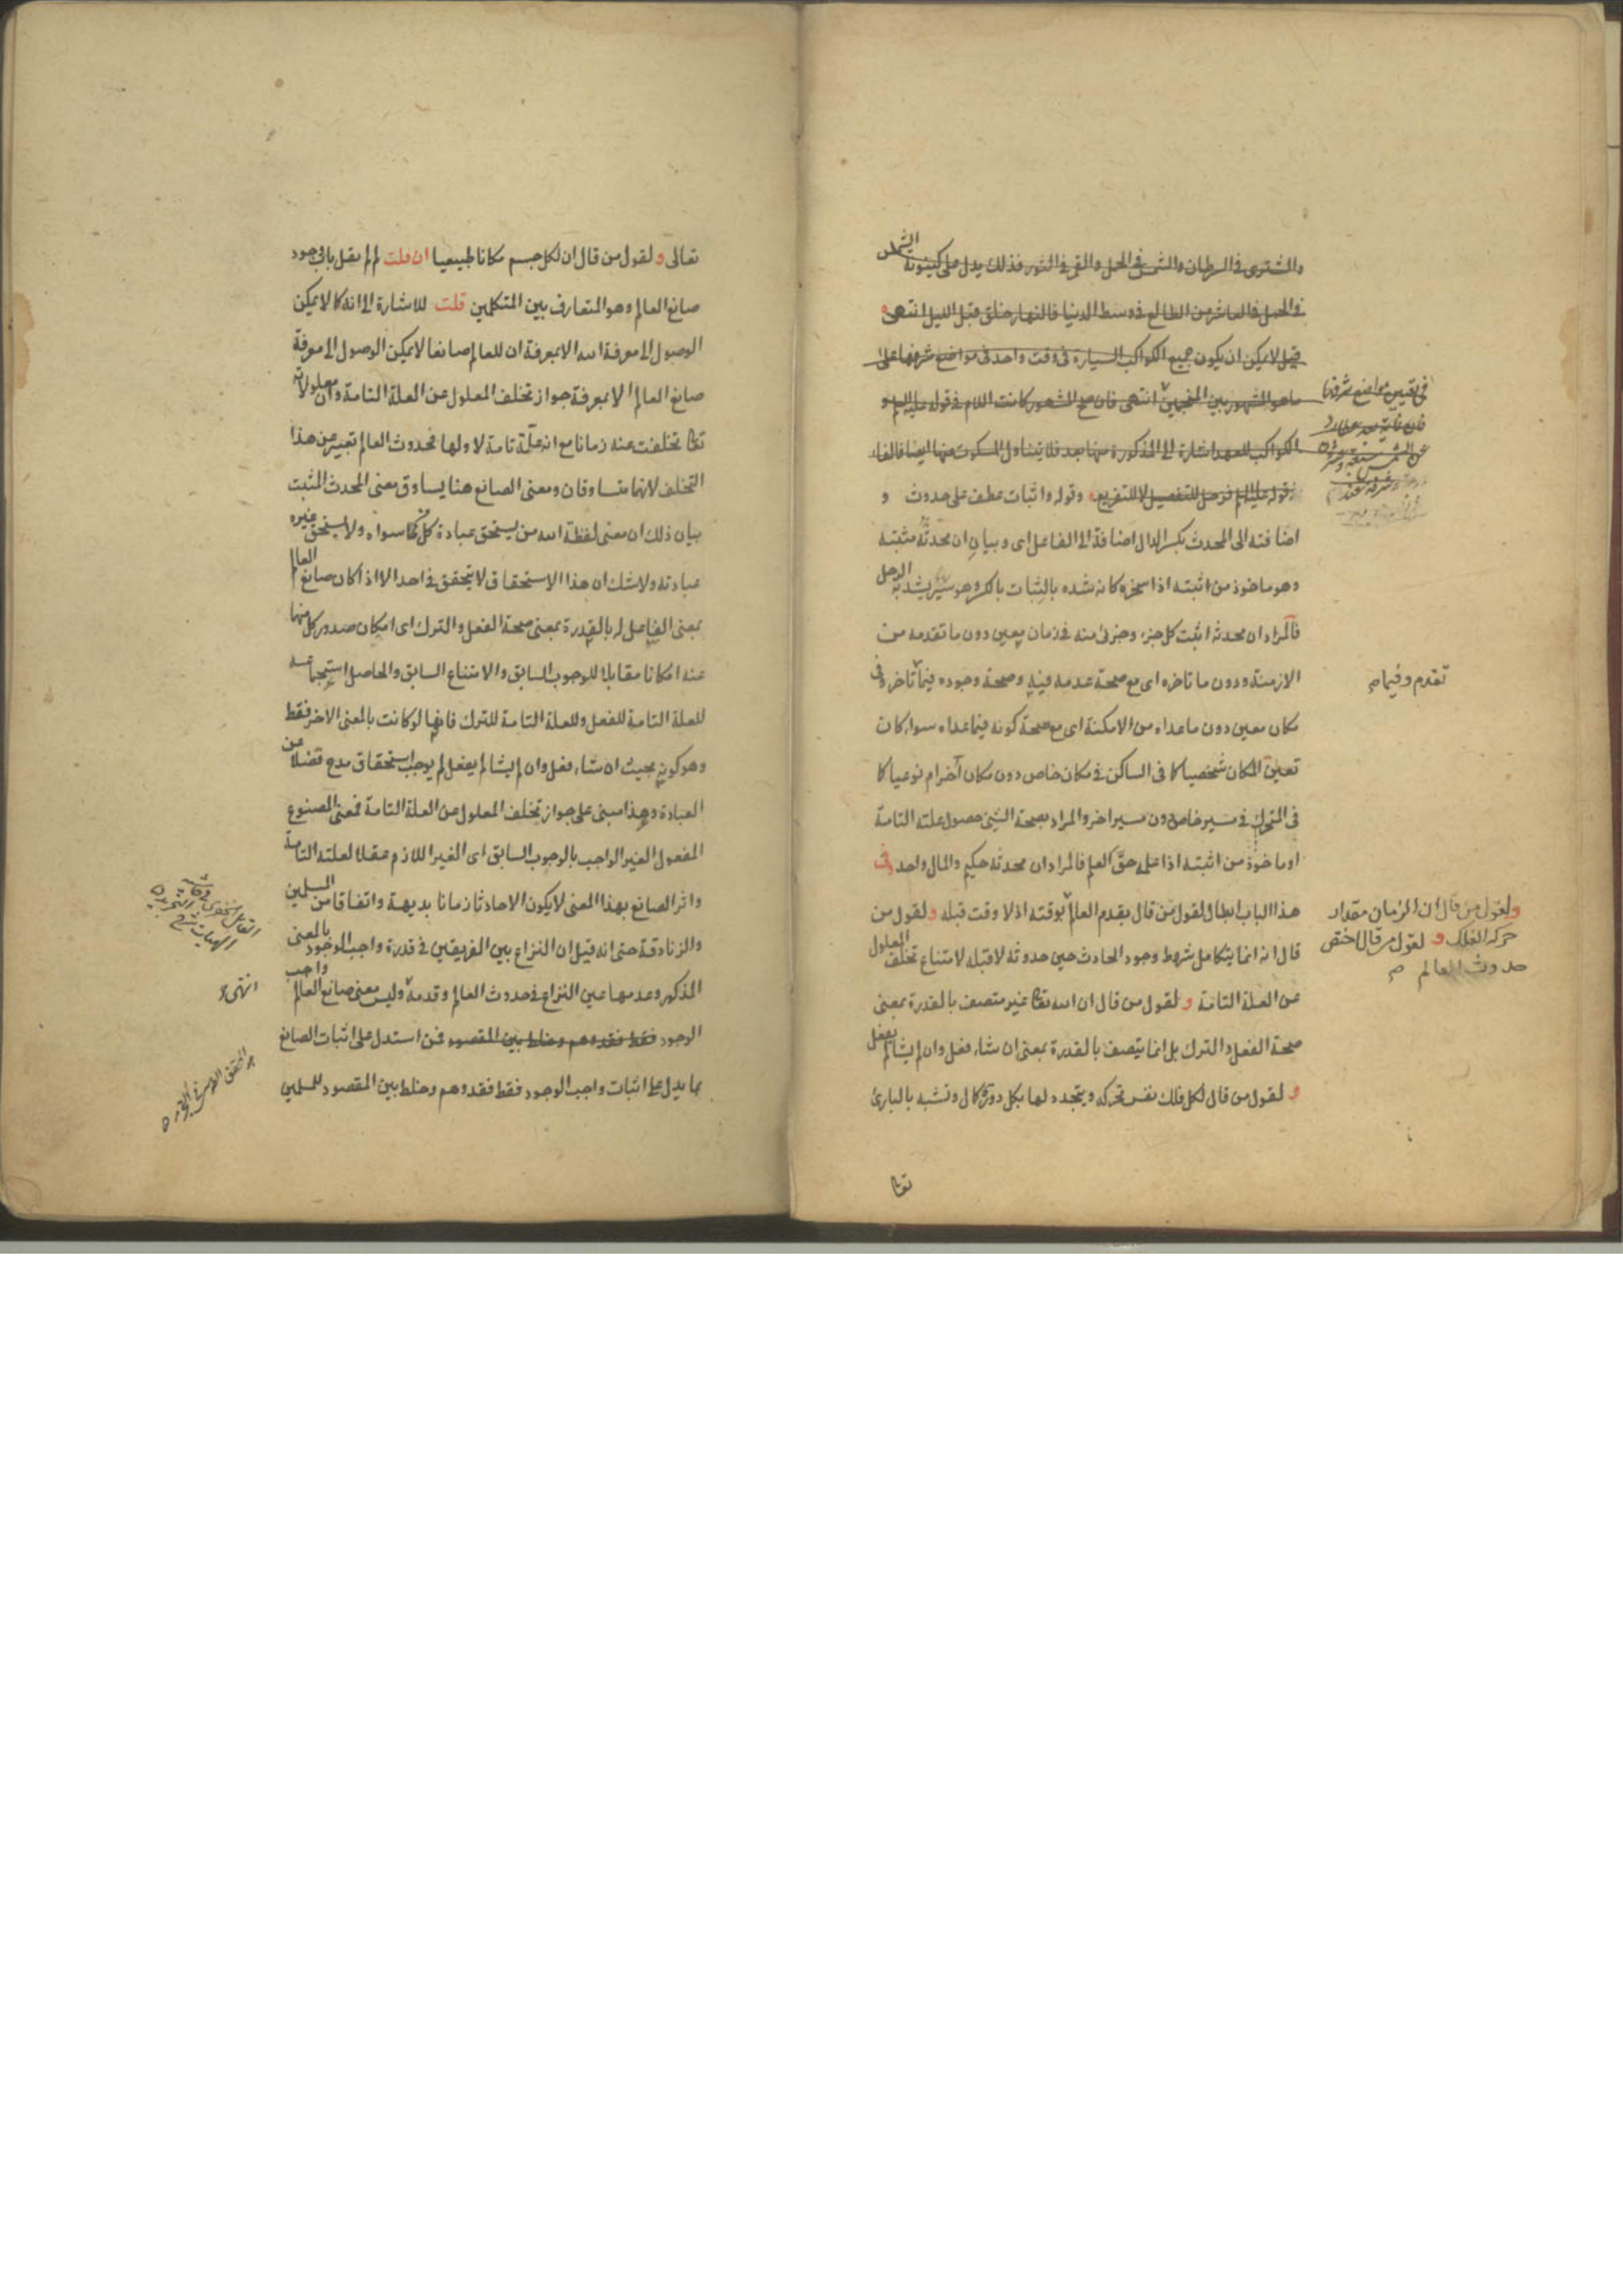 والمشترى فى السرطان والشمس فى الحمل والقمر فى الثور فذلك يدل على كينونة الشمس
فى الحمل فى العاشر من الطالع فى وسط الدنيا فالنهار خلق قبل الليل انتهى
قيل لا يمكن ان يكون جميع الكواكب السيارة فى وقت واحد فى مواضع شرفها على
ما هو المشهور بين المنجمين انتهى فان صح المشهور كانت اللام فى قوله عليه السلم و
الكواكب للعهد اشارة الى المذكورة منها بعد فلا يتناول المسكوت عنها ايضا فالفاء
فى قوله عليه السلم فزحل للتفصيل لا للتفريع وقوله واثبات عطف على حدوث و
اضافته الى المحدث بكسر الدال اضافة الى الفاعل اى وبيان ان محدثه مثبته
وهو ماخوذ من اثبته اذا سخره كانه شده بالثبات بالكسر وهو سير يشد به الرحل
فالمراد ان محدثه اثبت كل جزء وجزئ منه فى زمان معين دون ما تقدمه من
الازمنة ودون ما تاخره اى مع صحة عدمه فيه وصحة وجوده فيما تاخر وفى
مكان معين دون ما عداه من الامكنة اى مع صحة كونه فيما عداه سواء كان
تعين المكان شخصيا كما فى الساكن فى مكان خاص دون مكان آخر ام نوعيا كما
فى المتحرك فى مسير خاص دون مسير اخر والمراد بصحة الشئ حصول علته التامة
او ماخوذ من اثبته اذا علمه حق العلم فالمراد ان محدثه حكيم والمال واحد وفى
هذا الباب ابطال لقول من قال بقدم العالم بوقته اذ لا وقت قبله ولقول من
قال انه انما يتكامل شروط وجود الحادث حين حدوثه لا قبله لامتناع تخلف المعلول
عن العلة التامة ولقول من قال ان الله تعا غير متصف بالقدرة بمعنى
صحة الفعل والترك بل انما يتصف بالقدرة بمعنى ان شاء فعل وان لم يشأ لم يفعل
ولقول من قال لكل فلك نفس تحركه ويتجدد لها بكل دورة كمال وتشبه بالبارئ
تعا
فى تعيين مواضع شرفها
تقدم وفيما
ولقول من قال ان الزمان مقدار
حركة الفلك ولقول من قال اختص
حدوث العالم
تعالى ولقول من قال ان لكل جسم مكانا طبيعيا ان قلت لم لم يقل باب وجود
صانع العالم وهو المتعارف بين المتكلمين قلت للاشارة الى انه كما لا يمكن
الوصول الى معرفة الله الا بمعرفة ان للعالم صانعا لا يمكن الوصول الى معرفة
صانع العالم الا بمعرفة جواز تخلف المعلول عن العلة التامة وان معلولاته
تعا تخلفت عنه زمانا مع انه علة تامة لاولها فحدوث العالم تعبير عن هذا
التخلف لانهما متساوقان ومعنى الصانع هنا يساوق معنى المحدث المثبت
بيان ذلك ان معنى لفظة الله من يستحق عبادة كل من سواه ولا يستحق غيره
عبادته ولا شك ان هذا الاستحقاق لا يتحقق فى احد الا اذا كان صانع العالم
بمعنى الفاعل له بالقدرة بمعنى صحة الفعل والترك اى امكان صدور كل منهما
عنه امكانا مقابلا للوجوب السابق والامتناع السابق والحاصل استجماعه
للعلة التامة للفعل وللعلة التامة للترك فانها لو كانت بالمعنى الاخر فقط
وهو كونه بحيث ان شاء فعل وان لم يشا لم يفعل لم يوجب استحقاق مدح فضلا عن
العبادة وهذا مبنى على جواز تخلف المعلول عن العلة التامة فمعنى المصنوع
المفعول الغير الواجب بالوجوب السابق اى الغير اللازم عقلا لعلته التامة
واثر الصانع بهذا المعنى لا يكون الا حادثا زمانا بديهة واتفاقا من المسلمين
والزنادقة حتى انه قيل ان النزاع بين الفريقين فى قدرة واجب الوجود بالمعنى
المذكور وعدمها عين النزاع فى حدوث العالم وقدمه وليس معنى صانع العالم واجب
الوجود فقط فقد وهم وخلط بين المقصود فمن استدل على اثبات الصانع
بما يدل على اثبات واجب الوجود فقط فقد وهم وخلط بين المقصود للمسلمين
انتهى